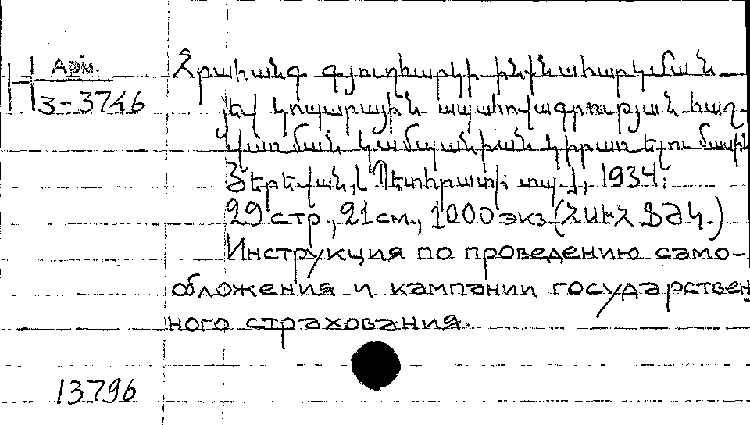 Арм.
Н
3-3746
Հրահանգ գյուղիարկի ինքնահարկման
յեվ կոպարային ապահովագրության հաղ-
վառման կամպանիան կիրառելու մասին
Յերեվան, [Պետհրատի տպ.], 1934.
29 стр., 21 см., 1000 экз. (ՀՍԽՀ ՖԺԿ.)
Инструкция по проведению само-
обложения и кампании государствен
ного страхования.
13796